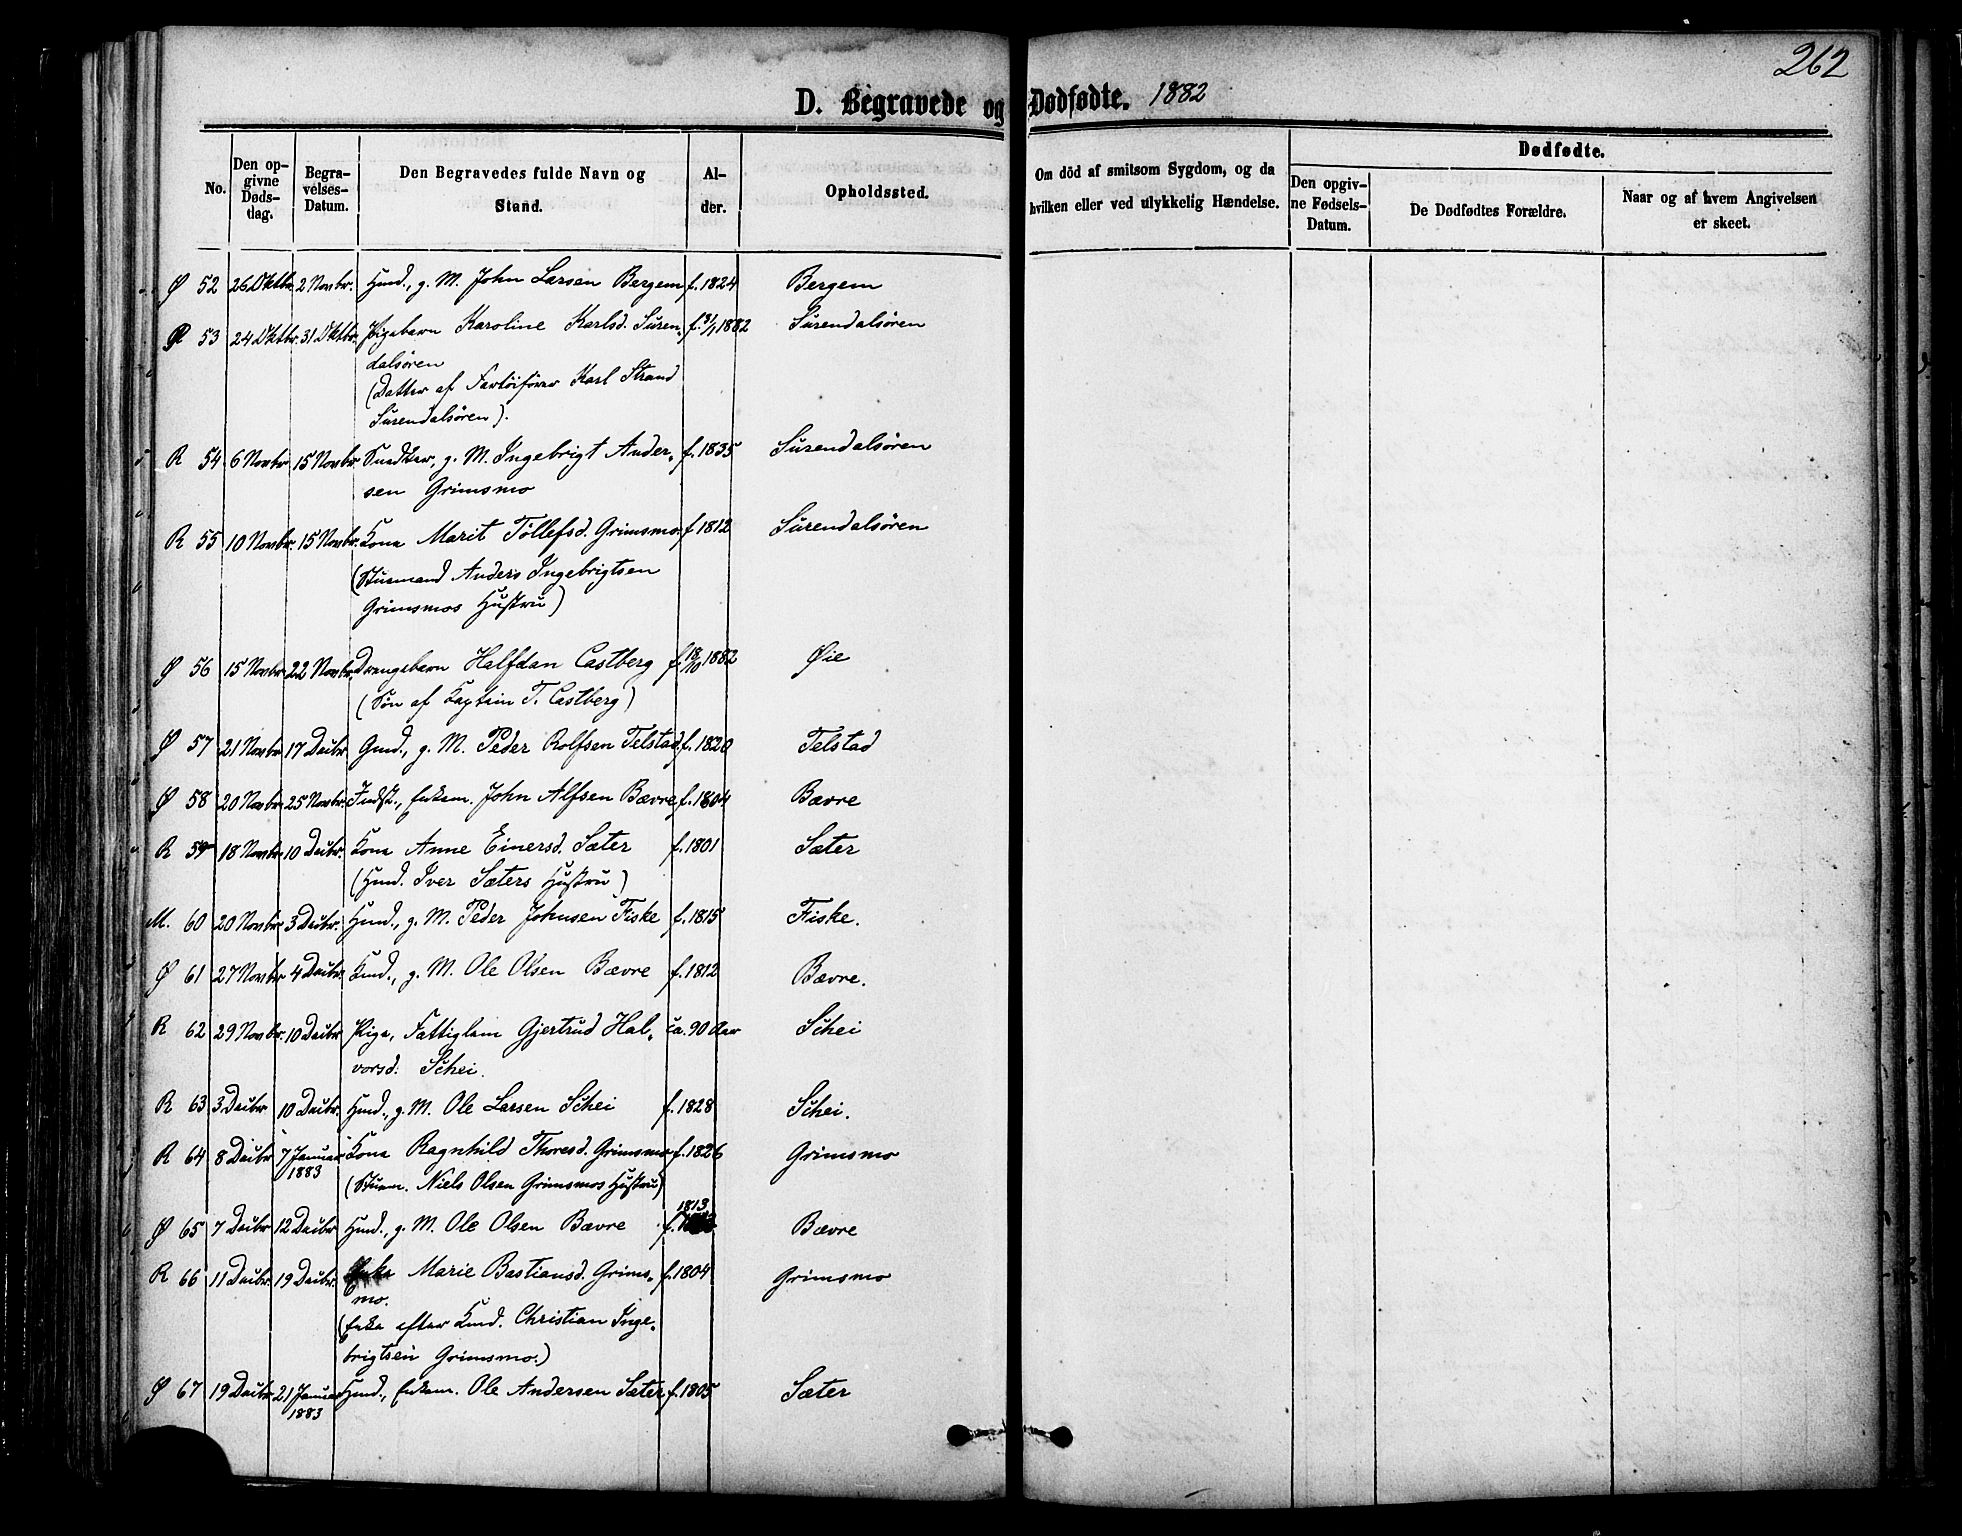 262
D. Begravede og Dødfødte. 1882
No.
Den op-
givne
Døds-
dag.
Begra-
velses-
Datum.
Den Begravedes fulde Navn og
Stand.
Al-
der.
Opholdssted.
Om död af smitsom Sygdom, og da
hvilken eller ved ulykkelig Hændelse.
Dødfødte.
Den opgiv-
ne Fødsels-
Datum.
De Dødfødtes Forældre.
Naar og af hvem Angivelsen
er skeet.
Ø 52 26 Oktbr. 2 Novbr. Hmd., g. M. John Larsen Bergem f. 1824 Bergem
R 53 24 Oktbr. 31 Oktbr. Pigebarn Karoline Karlsd. Suren- f. 31/1 1882 Surendalsören
dalsören
(Datter af Fartöifører Karl Strand
Surendalsören).
R 54 6 Novbr. 15 Novbr. Snedker, g. M. Ingebrigt Ander- f. 1835 Surendalsören
sen Grimsmo
R 55 10 Novbr. 15 Novbr. Kone Marit Töllefsd. Grimsmo f. 1812 Surendalsören
(Stuemand Anders Ingebrigtsen
Grimsmos Hustru)
Ø 56 15 Novbr. 22 Novbr. Drengebarn Halfdan Castberg f. 18/10 1882 Øie
(Søn af Kaptein T. Castberg)
Ø 57 21 Novbr. 17 Decbr. Gmd., g. M. Peder Rolfsen Telstad f. 1820 Telstad
Ø 58 20 Novbr. 25 Novbr. Indst., Enkem. John Alfsen Bævre f. 1804 Bævre
R 59 18 Novbr. 10 Decbr. Kone Anne Einersd. Sæter f. 1801 Sæter
(Hmd. Iver Sæters Hustru)
M. 60 20 Novbr. 3 Decbr. Hmd., g. M. Peder Johnsen Fiske f. 1815 Fiske.
Ø 61 27 Novbr. 4 Decbr. Kmd., g. M. Ole Olsen Bævre f. 1812 Bævre.
R 62 29 Novbr. 10 Decbr. Pige, Fattiglem Gjertrud Hal- ca. 90 Aar Schei
vorsd. Schei.
R 63 3 Decbr. 10 Decbr. Hmd., g. M. Ole Larsen Schei f. 1828 Schei.
R 64 8 Decbr. 7 Januar Kone Ragnhild Thoresd. Grimsmo f. 1826 Grimsmo
1883 (Stuem. Niels Olsen Grimsmos Hustru)
Ø 65 7 Decbr. 12 Decbr. Hmd., g. M. Ole Olsen Bævre f. 1813 Bævre
R 66 11 Decbr. 19 Decbr. Enke Marie Bastiansd. Grims- f. 1804 Grimsmo
mo.
(Enke efter Kmd. Christian Inge-
brigtsen Grimsmo.)
Ø 67 19 Decbr. 21 Januar Hmd., Enkem. Ole Andersen Sæter f. 1805 Sæter
1883